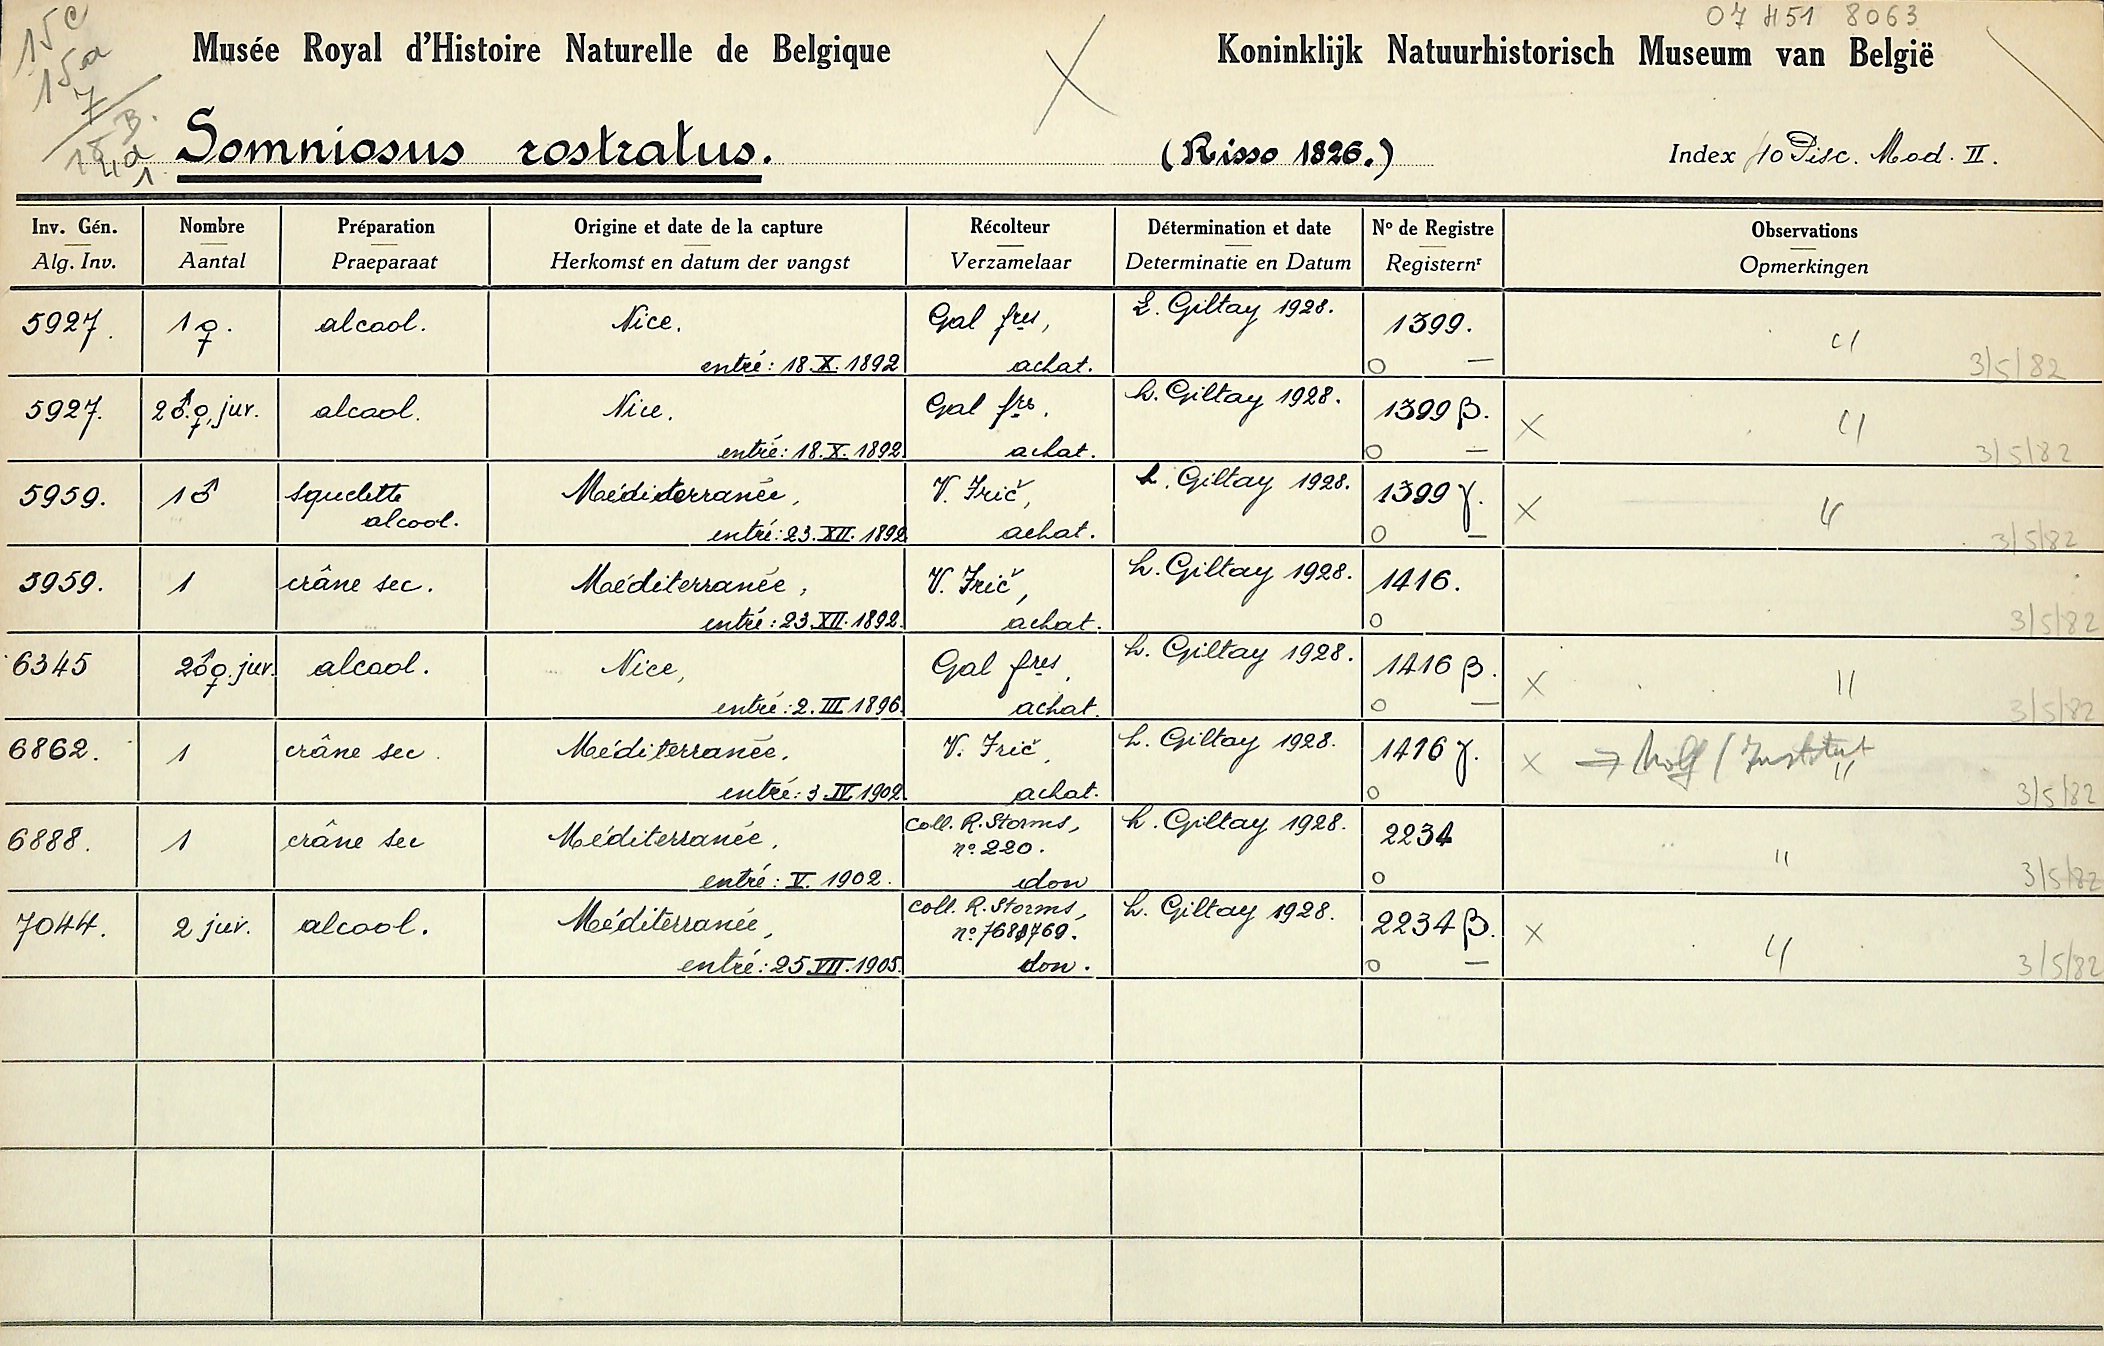 15c
15a
7
B.
07 451 8063
Musée Royal d'Histoire Naturelle de Belgique
Koninklijk Natuurhistorisch Museum van België
Somniosus rostratus. (Risso 1826.) Index 40 Pisc. Mod. II.
Inv. Gén. Nombre Préparation Origine et date de la capture Récolteur Détermination et date Nº de Registre Observations
Alg. Inv. Aantal Praeparaat Herkomst en datum der vangst Verzamelaar Determinatie en Datum Registernr Opmerkingen
5927. 1 ♀. alcool. Nice. Gal fres, L. Giltay 1928. 1399. "
entré: 18.X.1892 achat. o — 3/5/82
5927. 2 ♂.♀, juv. alcool. Nice. Gal frs. L. Giltay 1928. 1399 β. × "
entré: 18.X.1892 achat. o — 3/5/82
5959. 1 ♂ squelette Méditerranée, V. Frič, L. Giltay 1928. 1399 γ. × "
alcool. entré: 23.XII.1892 achat. o — 3/5/82
5959. 1 crâne sec. Méditerranée, V. Frič, L. Giltay 1928. 1416.
entré: 23.XII.1892. achat. o 3/5/82
6345 2 ♂♀. juv. alcool. Nice, Gal fres, L. Giltay 1928. 1416 β. × "
entré: 2.III.1896. achat. o — 3/5/82
6862. 1 crâne sec. Méditerranée. V. Frič, L. Giltay 1928. 1416 γ. × → Institut "
entré: 3.IV.1902. achat. o 3/5/82
6888. 1 crâne sec Méditerranée, coll. R. Storms, L. Giltay 1928. 2234 "
nº 220.
entré: V. 1902. don o 3/5/82
7044. 2 juv. alcool. Méditerranée, coll. R. Storms, L. Giltay 1928. 2234 β. × "
nº 768 769.
entré: 25.VII.1905. don. o — 3/5/82